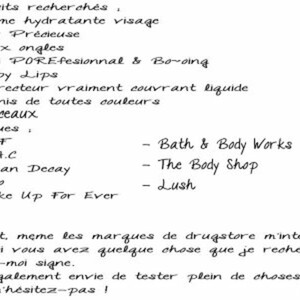 its recherchés :
me hydratante visage
Précieuse
x ongles
POREfesionnal & Bo-oing
by Lips
recteur vraiment couvrant liquide
nis de toutes couleurs
ceaux
ues :
F
A.C
an Decay
o
ke Up For Ever
- Bath & Body Works
- The Body Shop
- Lush
t, même les marques de drugstore m'inte
i vous avez quelque chose que je reche
-moi signe.
galement envie de tester plein de choses
'hésitez-pas !